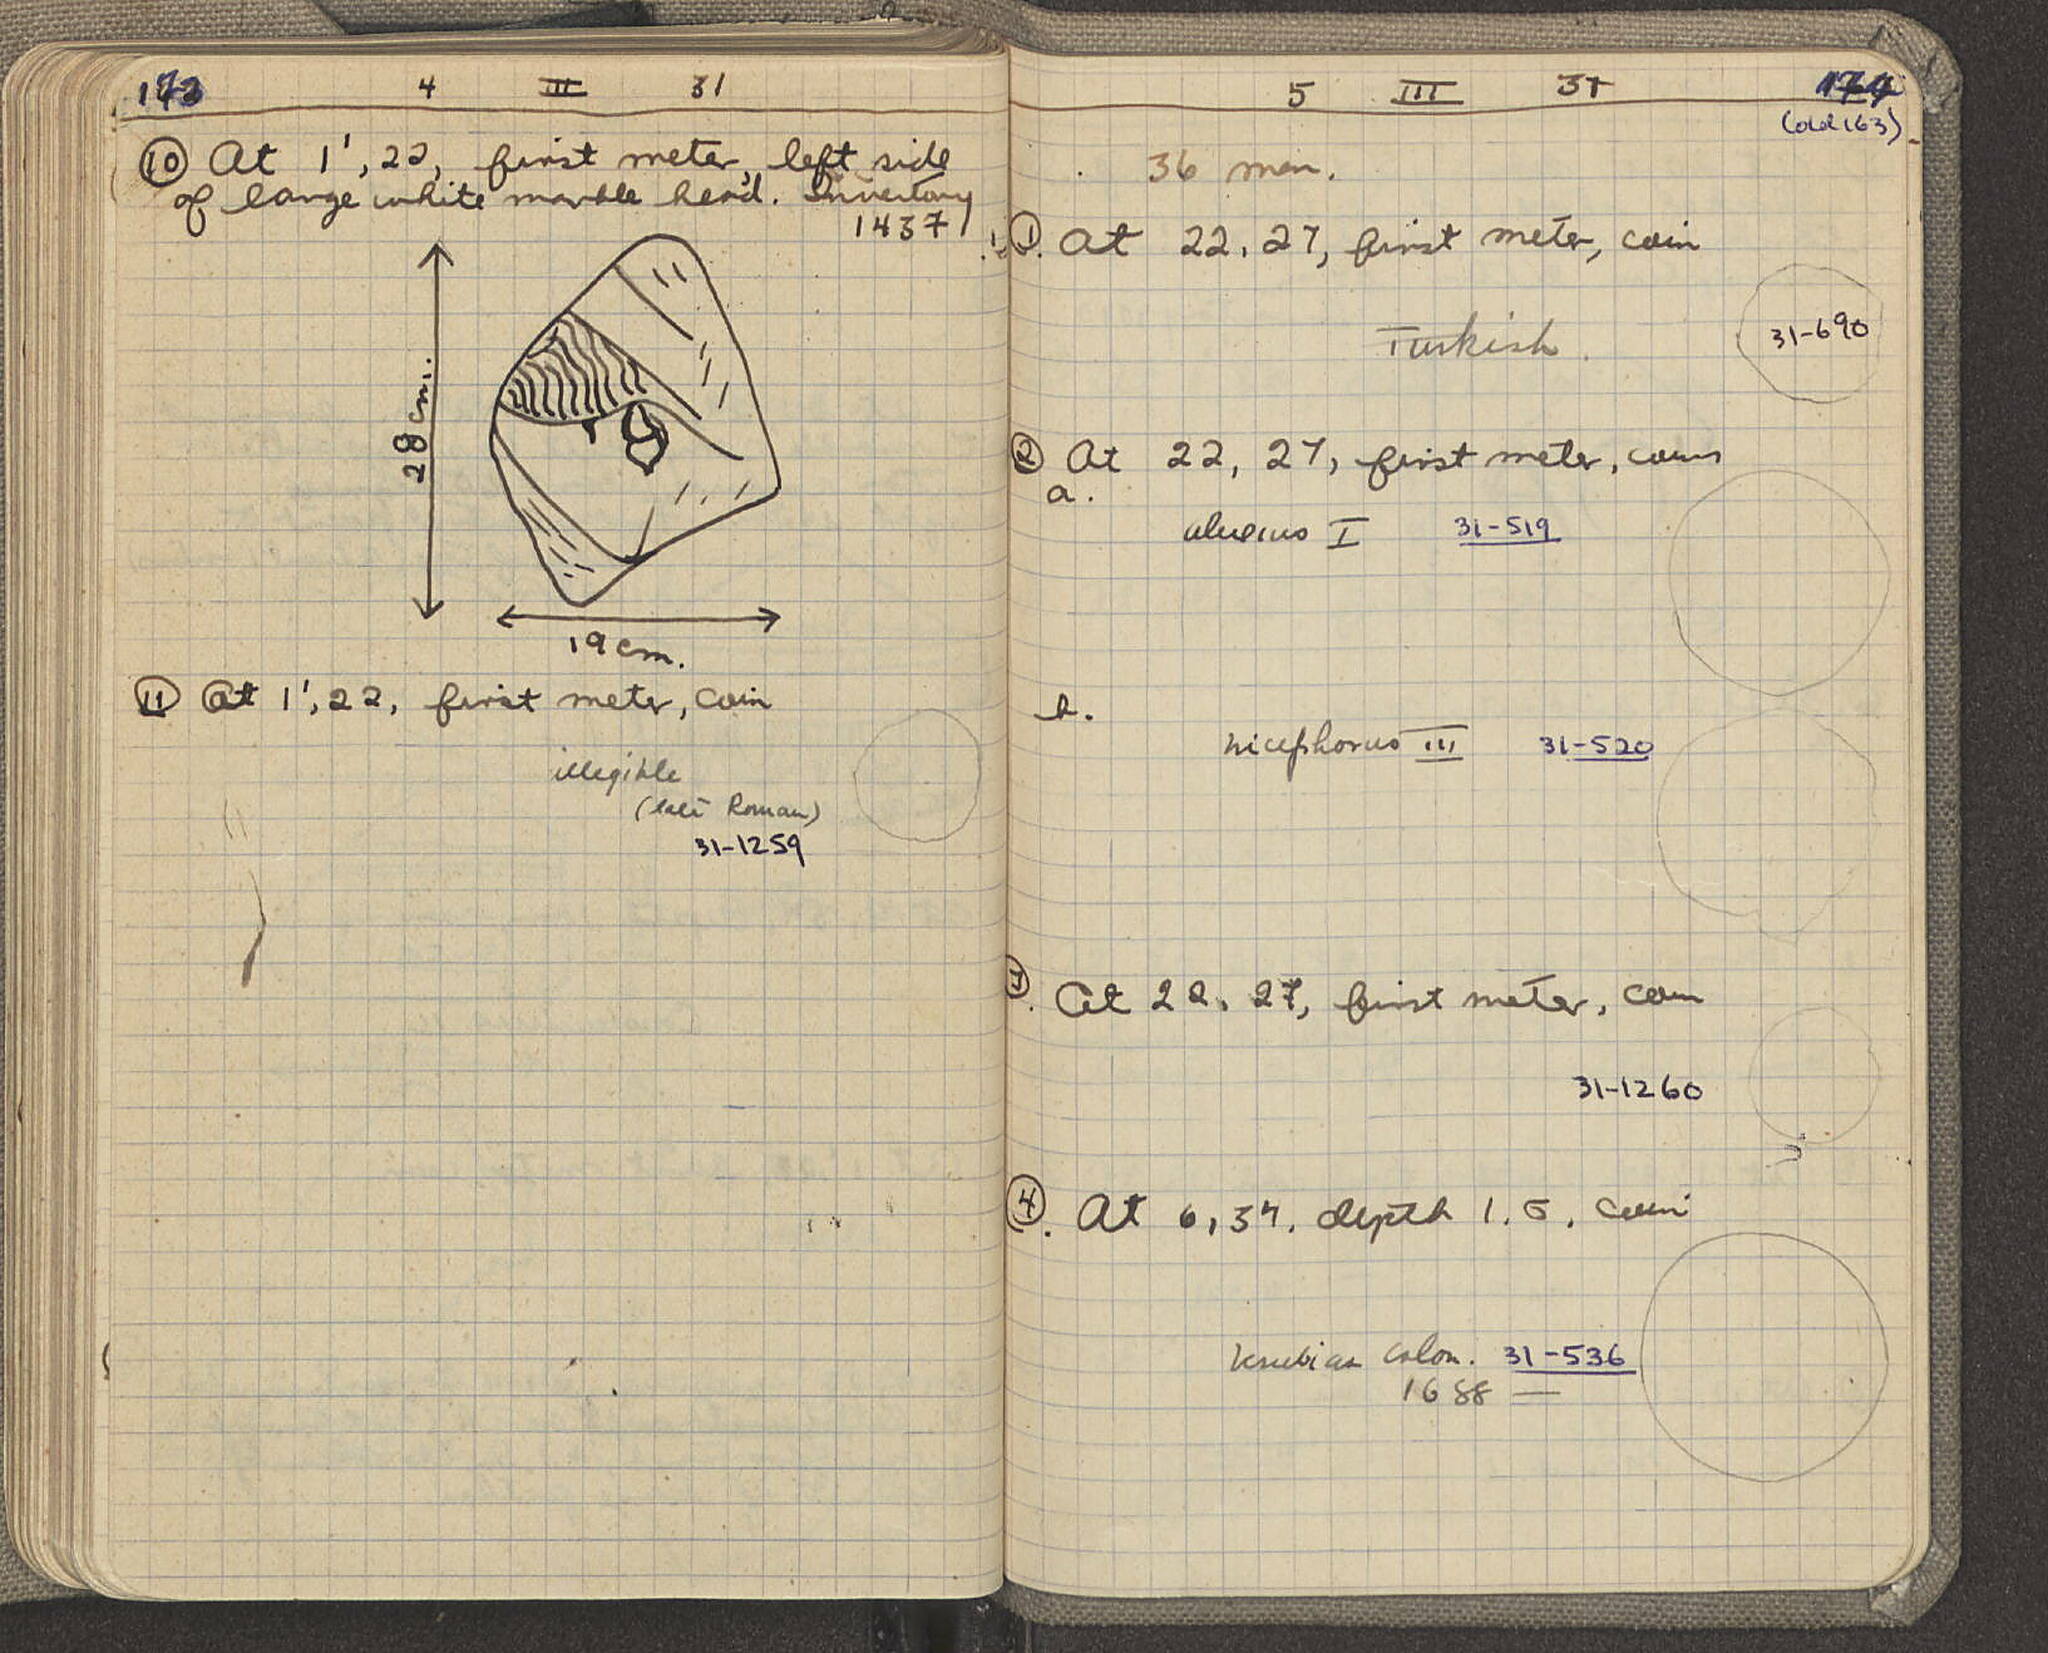 173 4 III 31
⑩ At 1', 22, first meter, left side
of large white marble head. Inventory
1437
28 cm.
19 cm.
⑪ At 1', 22, first meter, coin
illegible
(late Roman)
31-1259
5 III 31 174
(old 163)
36 men.
① At 22, 27, first meter, coin
Turkish.
31-690
② At 22, 27, first meter, coins
a.
Alexius I 31-519
b.
Nicephorus III 31-520
③. At 22, 27, first meter, coin
31-1260
④. At 6, 34, depth 1.5, coin
colon. 31-536
1688 —